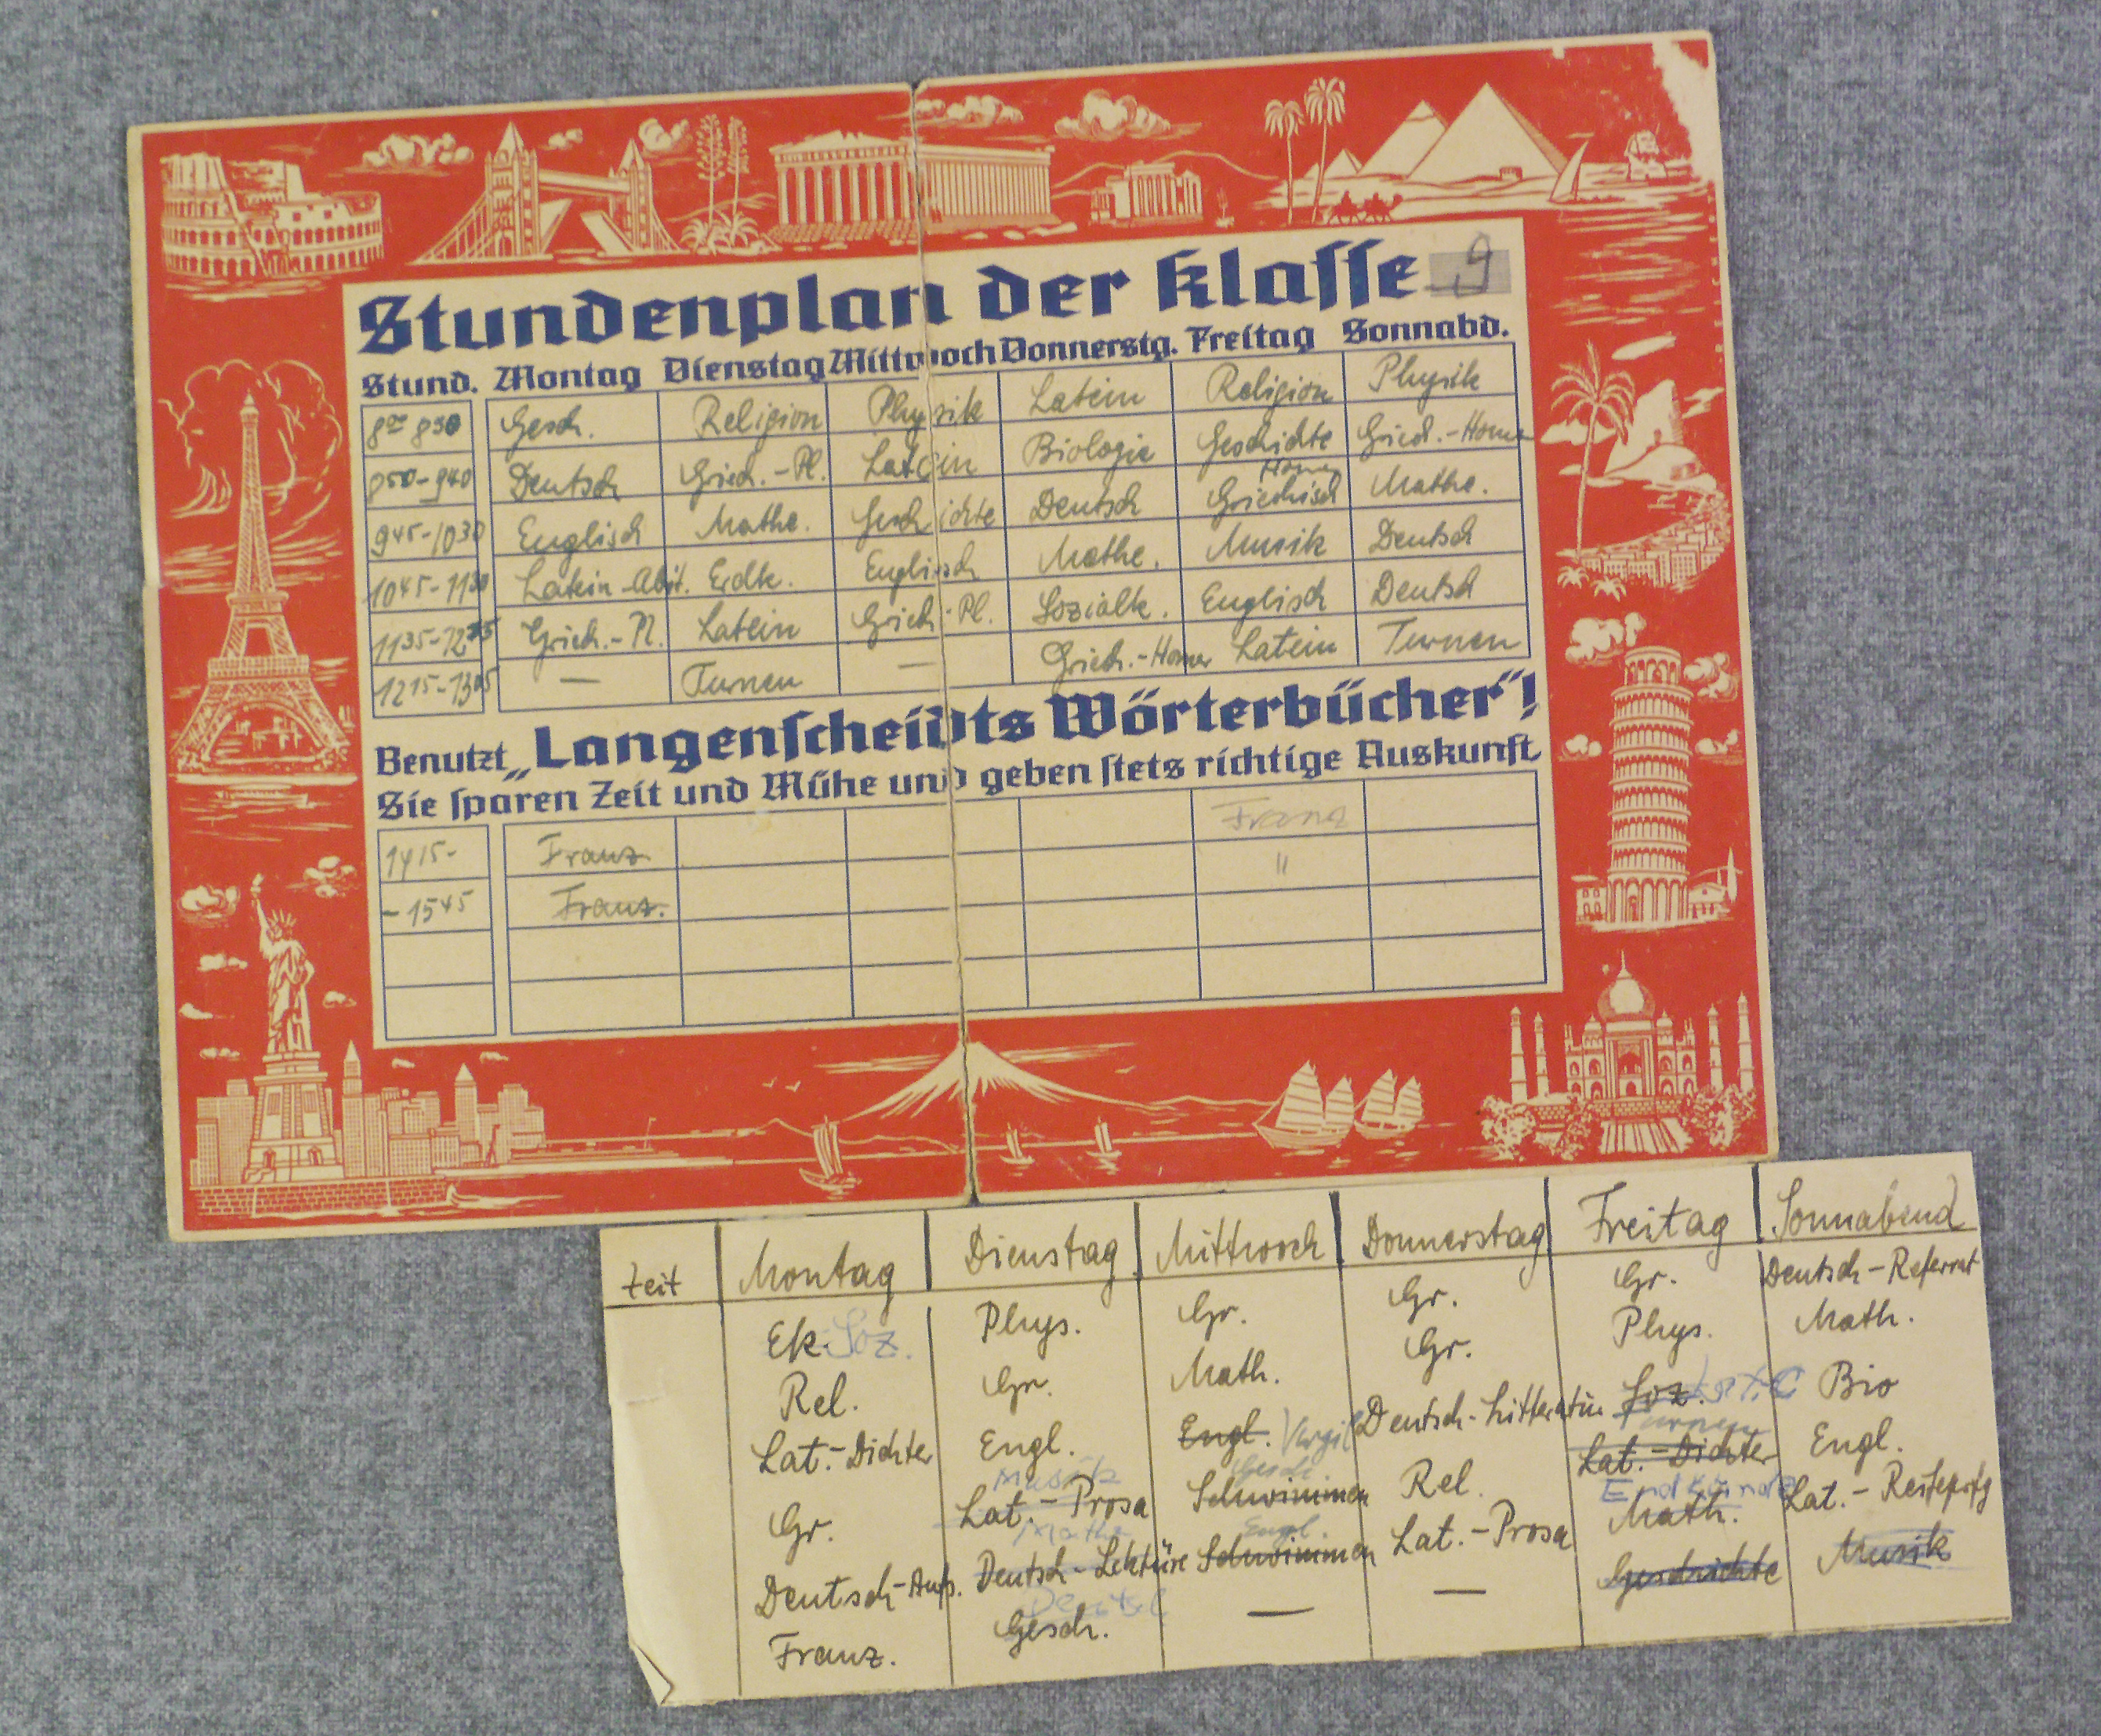 Stundenplan der Klasse 9
Stund. Montag Dienstag Mittwoch Donnerstg. Freitag Sonnabd.
8⁰⁰ 8⁵⁰ Gesch. Religion Physik Latein Religion Physik
8⁵⁰-9⁴⁰ Deutsch Griech.-Pl. Latein Biologie Geschichte Griech.-Homer
9⁴⁵-10³⁰ Englisch Mathe. Geschichte Deutsch Homer Griechisch Mathe.
10⁴⁵-11³⁰ Latein-Abit. Erdk. Englisch Mathe. Musik Deutsch
11³⁵-12¹⁵ Griech.-Pl. Latein Griech.-Pl. Sozialk. Englisch Deutsch
12¹⁵-13⁰⁵ — Turnen — Griech.-Homer Latein Turnen
Benutzt „Langenscheidts Wörterbücher"!
Sie sparen Zeit und Mühe und geben stets richtige Auskunft
14¹⁵- Franz. Franz
-15⁴⁵ Franz. "
Zeit Montag Dienstag Mittwoch Donnerstag Freitag Sonnabend
Ek. Soz. Phys. Gr. Gr. Gr. Deutsch-Referat
Rel. Gr. Math. Gr. Phys. Math.
Lat.-Dichter Engl. Engl. Vergil Deutsch-Litteratur Soz. Bio
Musik Gesch. Turnen
Gr. Lat.-Prosa Schwimmen Rel. Lat.-Dichter Engl.
Mathe Engl. Erdkunde
Deutsch-Aufs. Deutsch-Lektüre Schwimmen Lat.-Prosa Math. Lat.-
Deutsch
Franz. Gesch. — — Geschichte Musik